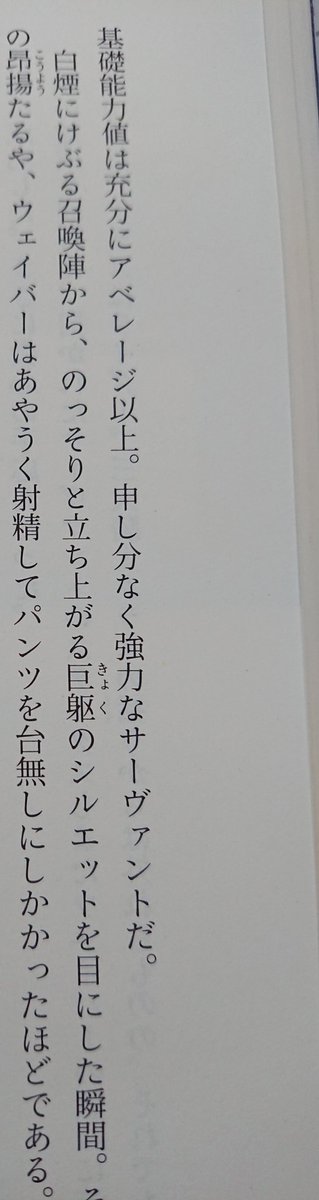 基礎能力値は充分にアベレージ以上。申し分なく強力なサーヴァントだ。
白煙にけぶる召喚陣から、のっそりと立ち上がる巨躯きょくのシルエットを目にした瞬間。そ
の昂揚こうようたるや、ウェイバーはあやうく射精してパンツを台無しにしかかったほどである。